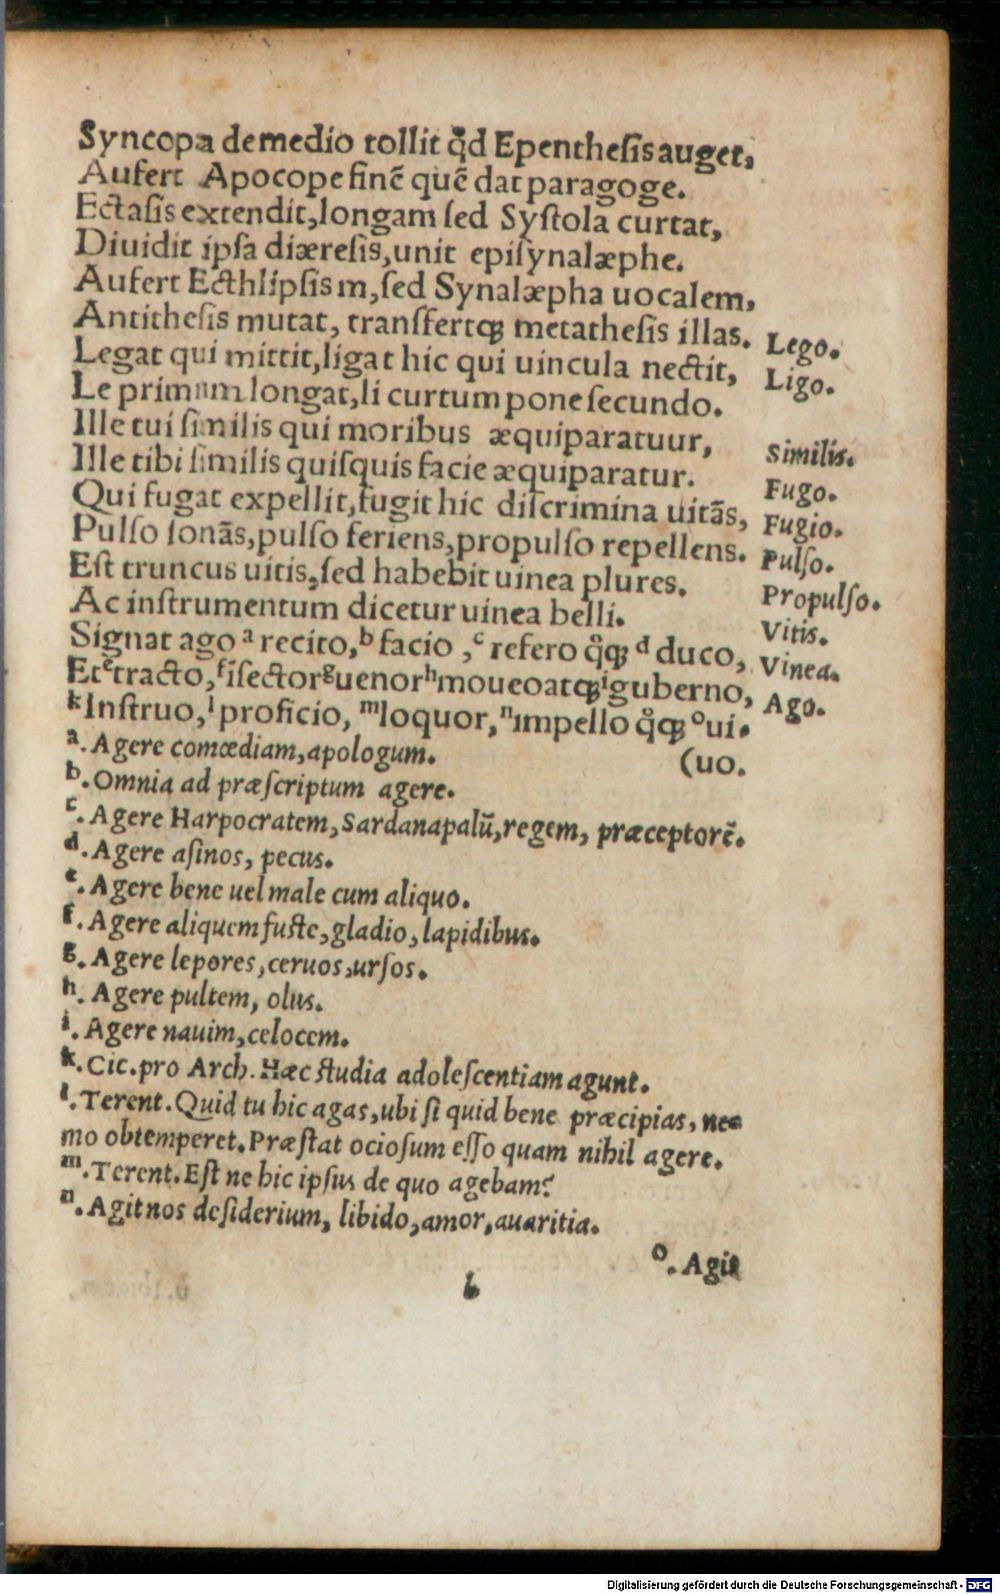 Syncopa de medio tollit qđ Epenthesis auget,
Aufert Apocope finē quē dat paragoge.
Ectasis extendit, longam sed Systola curtat,
Diuidit ipsa diæresis, unit episynalæphe.
Aufert Ecthlipsis m, sed Synalæpha uocalem,
Antithesis mutat, transfertq; metathesis illas.
Lego.
Legat qui mittit, ligat hic qui uincula nectit,
Ligo.
Le primum longat, li curtum pone secundo.
Ille tui similis qui moribus æquiparatuur,
Similis.
Ille tibi similis quisquis facie æquiparatur.
Fugo.
Qui fugat expellit, fugit hic discrimina uitās,
Fugio.
Pulso sonās, pulso feriens, propulso repellens.
Pulso.
Est truncus uitis, sed habebit uinea plures.
Propulso.
Ac instrumentum dicetur uinea belli.
Vitis.
Signat ago a recito, b facio , c refero q̊q; d duco,
Vinea.
Et e tracto, f isector g uenor h moueo atq; i guberno,
Ago.
k Instruo, l proficio, m loquor, n impello q̊q; o ui.
(uo.
a. Agere comœdiam, apologum.
b. Omnia ad præscriptum agere.
c. Agere Harpocratem, Sardanapalū, regem, præceptorē.
d. Agere asinos, pecus.
e. Agere bene uel male cum aliquo.
f. Agere aliquem fuste, gladio, lapidibus.
g. Agere lepores, ceruos, ursos.
h. Agere pultem, olus.
i. Agere nauim, celocem.
k. Cic. pro Arch. Hæc studia adolescentiam agunt.
l. Terent. Quid tu hic agas, ubi si quid bene præcipias, ne-
mo obtemperet. Præstat ociosum esso quam nihil agere.
m. Terent. Est ne hic ipsus de quo agebam?
n. Agit nos desiderium, libido, amor, auaritia.
o. Agit
b
Digitalisierung gefördert durch die Deutsche Forschungsgemeinschaft - DFG